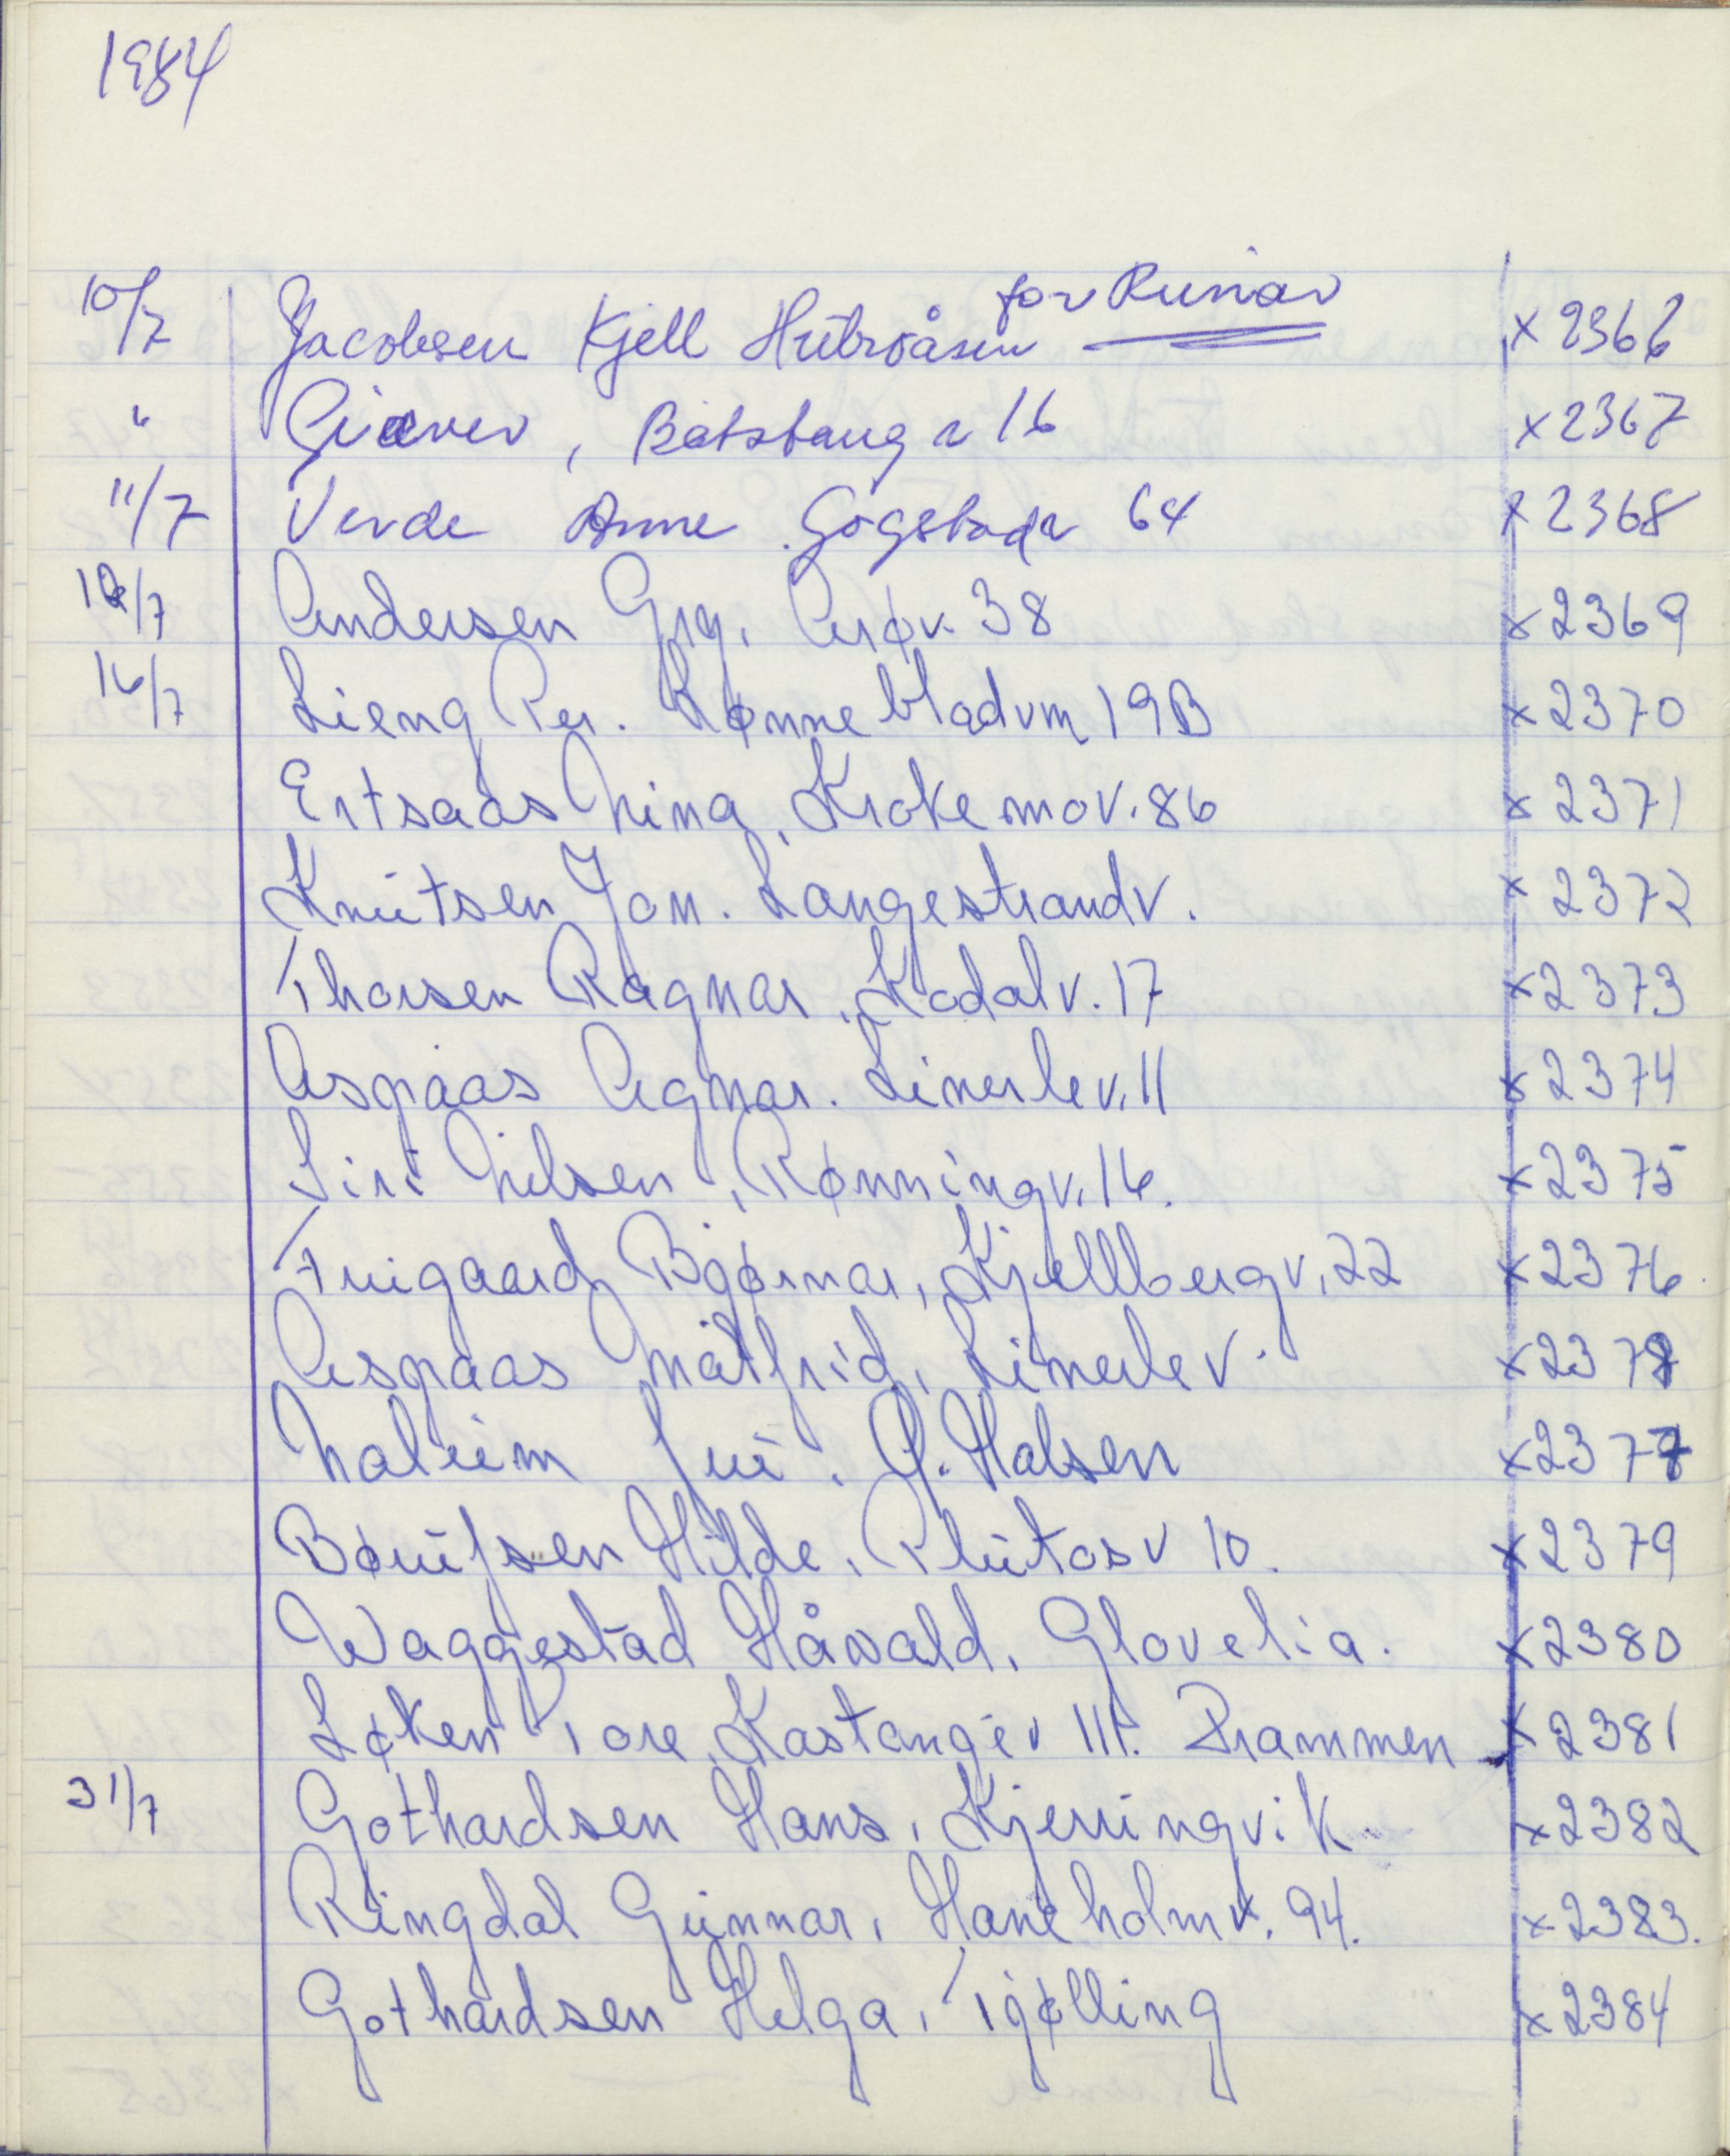 1984
for Runar
10/7 Jacobsen Kjell Hubroåsen x 2366
" Giæver, Båtstang v 16 x 2367
11/7 Verde Anne Gogstadv 64 x 2368
12/7 Andersen Gry. Arøv. 38 x 2369
16/7 Lieng Per. Lønnebladvn 19B x 2370
Ertsaas Nina, Krokemov. 86 x 2371
Knutsen Jon. Langestrandv. x 2372
Thorsen Ragnar, Kodalv. 17 x 2373
Aspaas Agnar. Linerlev. 11 x 2374
Siri Nilsen, Rønningv. 16. x 2375
Furigaard Bjørnar, Kjellbergv. 22 x 2376
Aspaas Målfrid, Linerlev. x 2378
Naluim Jui. Ø. Halsen x 2377
Hilde, Plutosv 10. x 2379
Waggestad Håvald. Glovelia. x 2380
Løken Tore, Kastangev 111. Drammen x 2381
31/7 Gothardsen Hans, Kjerringvik x 2382
Ringdal Gunnar, Haneholmv. 94. x 2383.
Gothardsen Helga, Tjølling x 2384